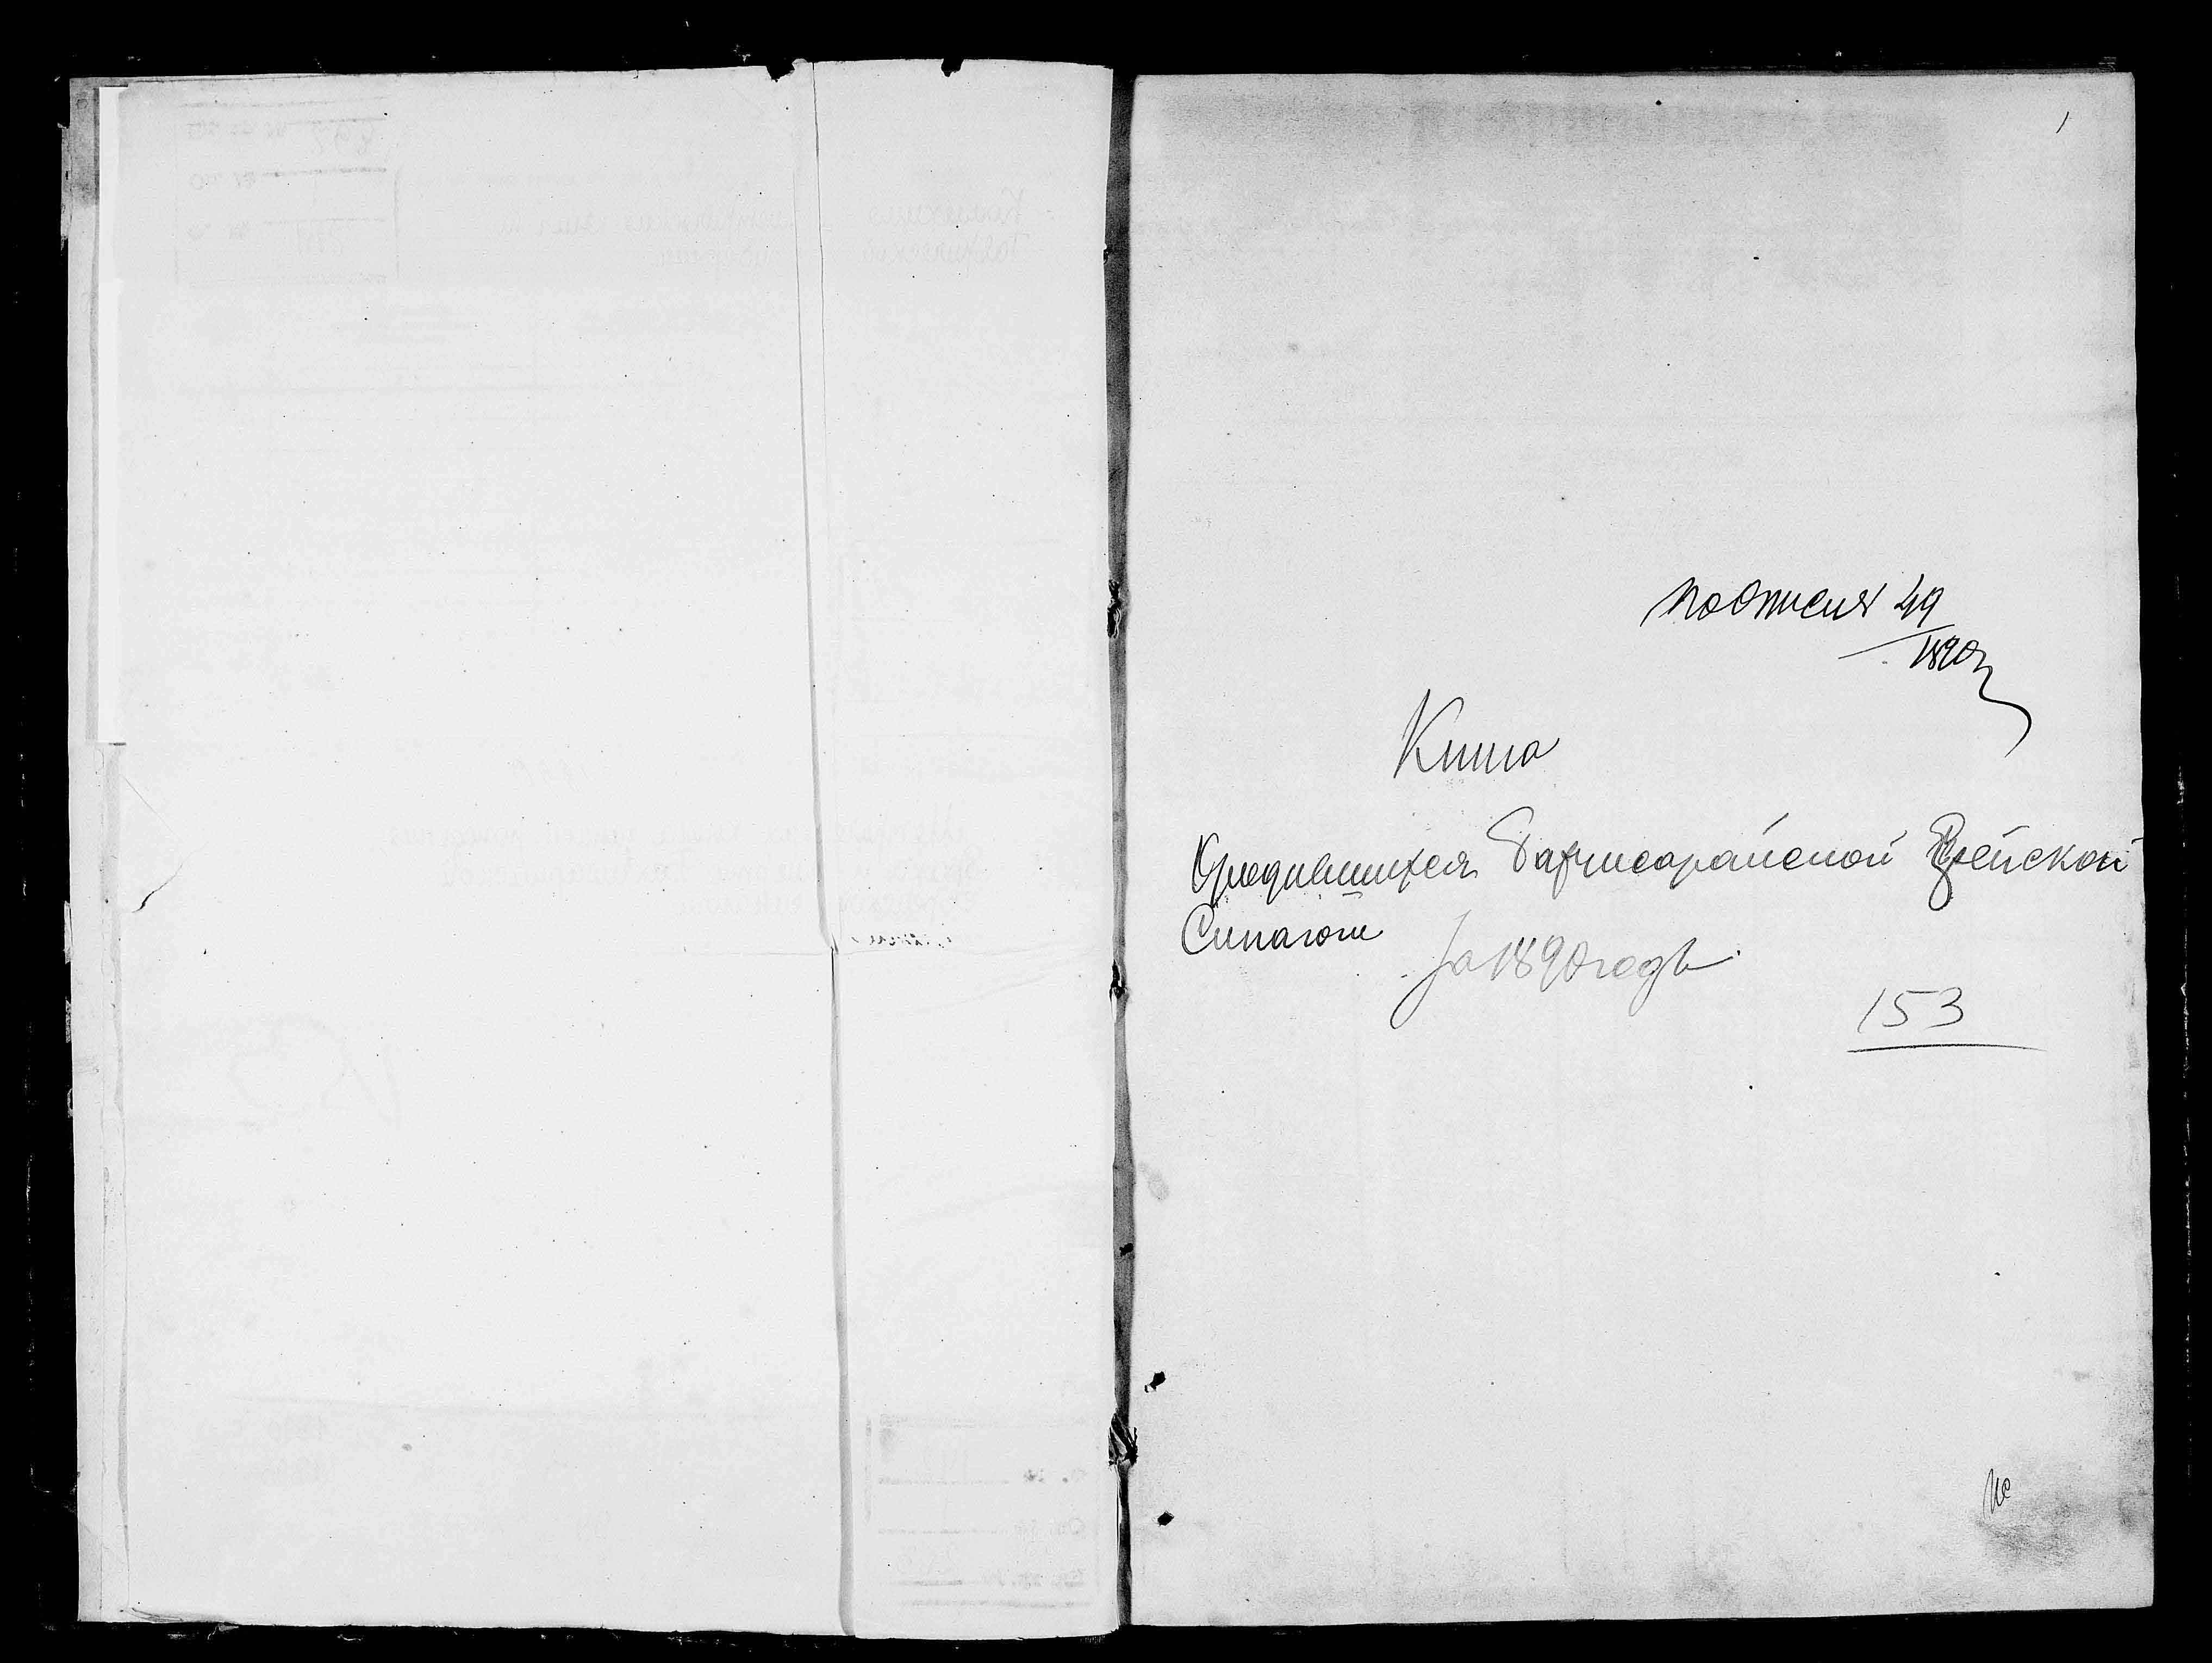 1
по описи 49
1890 г
Книга
О родившихся Бахчисарайской Еврейской
Синагоги
За 1890 годъ
153